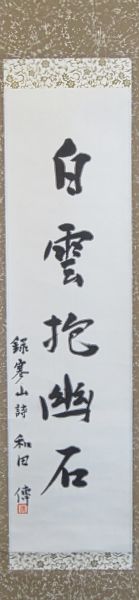 白雲抱幽石
録寒山詩 和田 傳